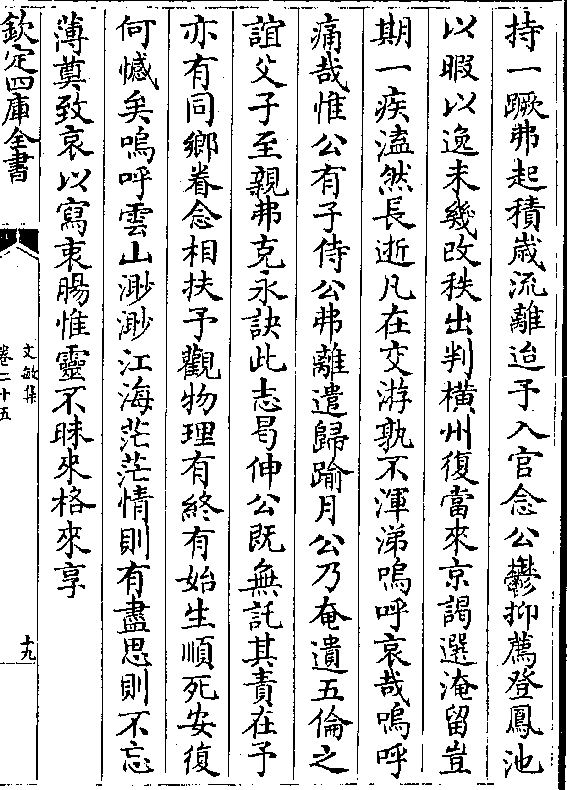 持一蹶弗起積歲流離迨予入官念公鬱抑薦登鳳池
以暇以逸未幾改秩出判橫州復當來京謁選淹留豈
期一疾溘然長逝凡在交游孰不渾涕嗚呼哀哉嗚呼
痛哉惟公有子侍公弗離遣歸踰月公乃奄遺五倫之
誼父子至親弗克永訣此志曷伸公既無託其責在予
亦有同鄉眷念相扶予觀物理有終有始生順死安復
何憾矣嗚呼雲山渺渺江海茫茫情則有盡思則不忘
薄奠致哀以寫衷腸惟靈不昧來格來享
欽定四庫全書
文敏集
卷二十五
十九